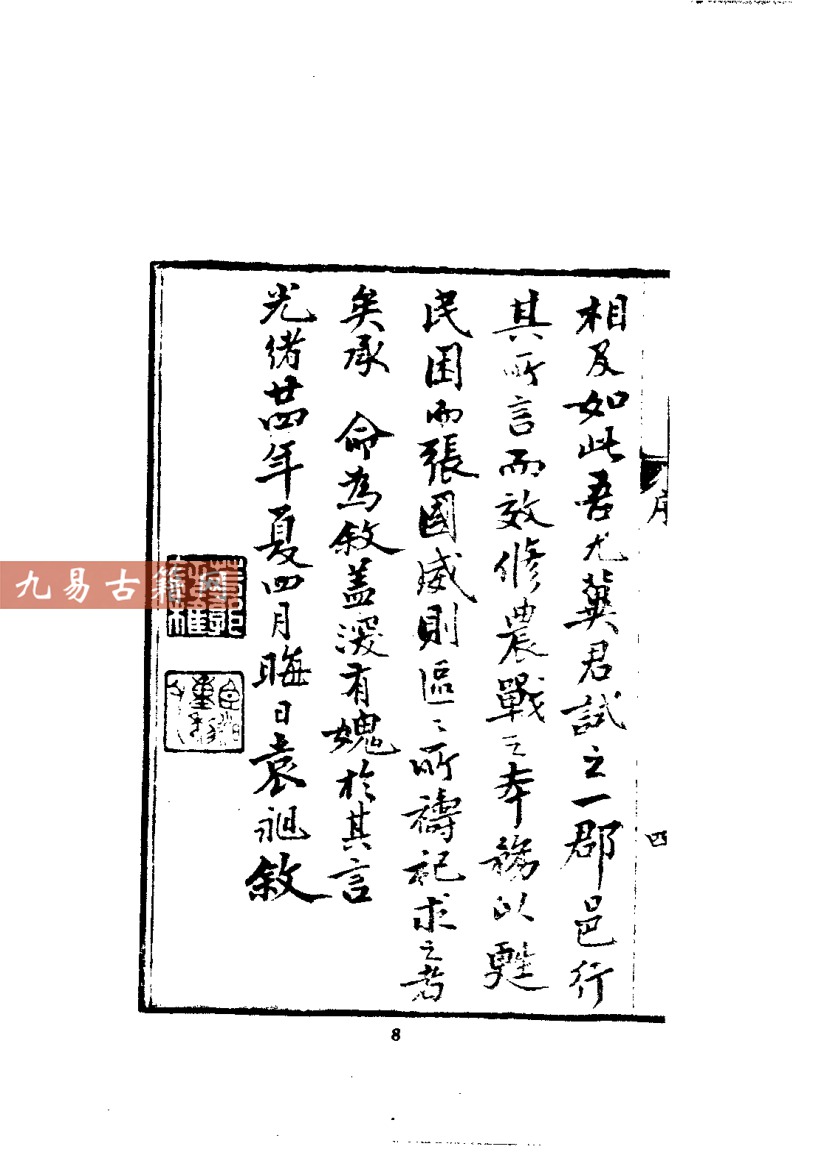 序
四
相及如此吾尤冀君試之一郡邑行
其所言而效修農戰之本務以甦
民困而張國威則區〻所禱祀求之者
矣承 命為敘蓋深有媿於其言
光緒廿四年夏四月晦日袁昶敘
九易古籍網
8